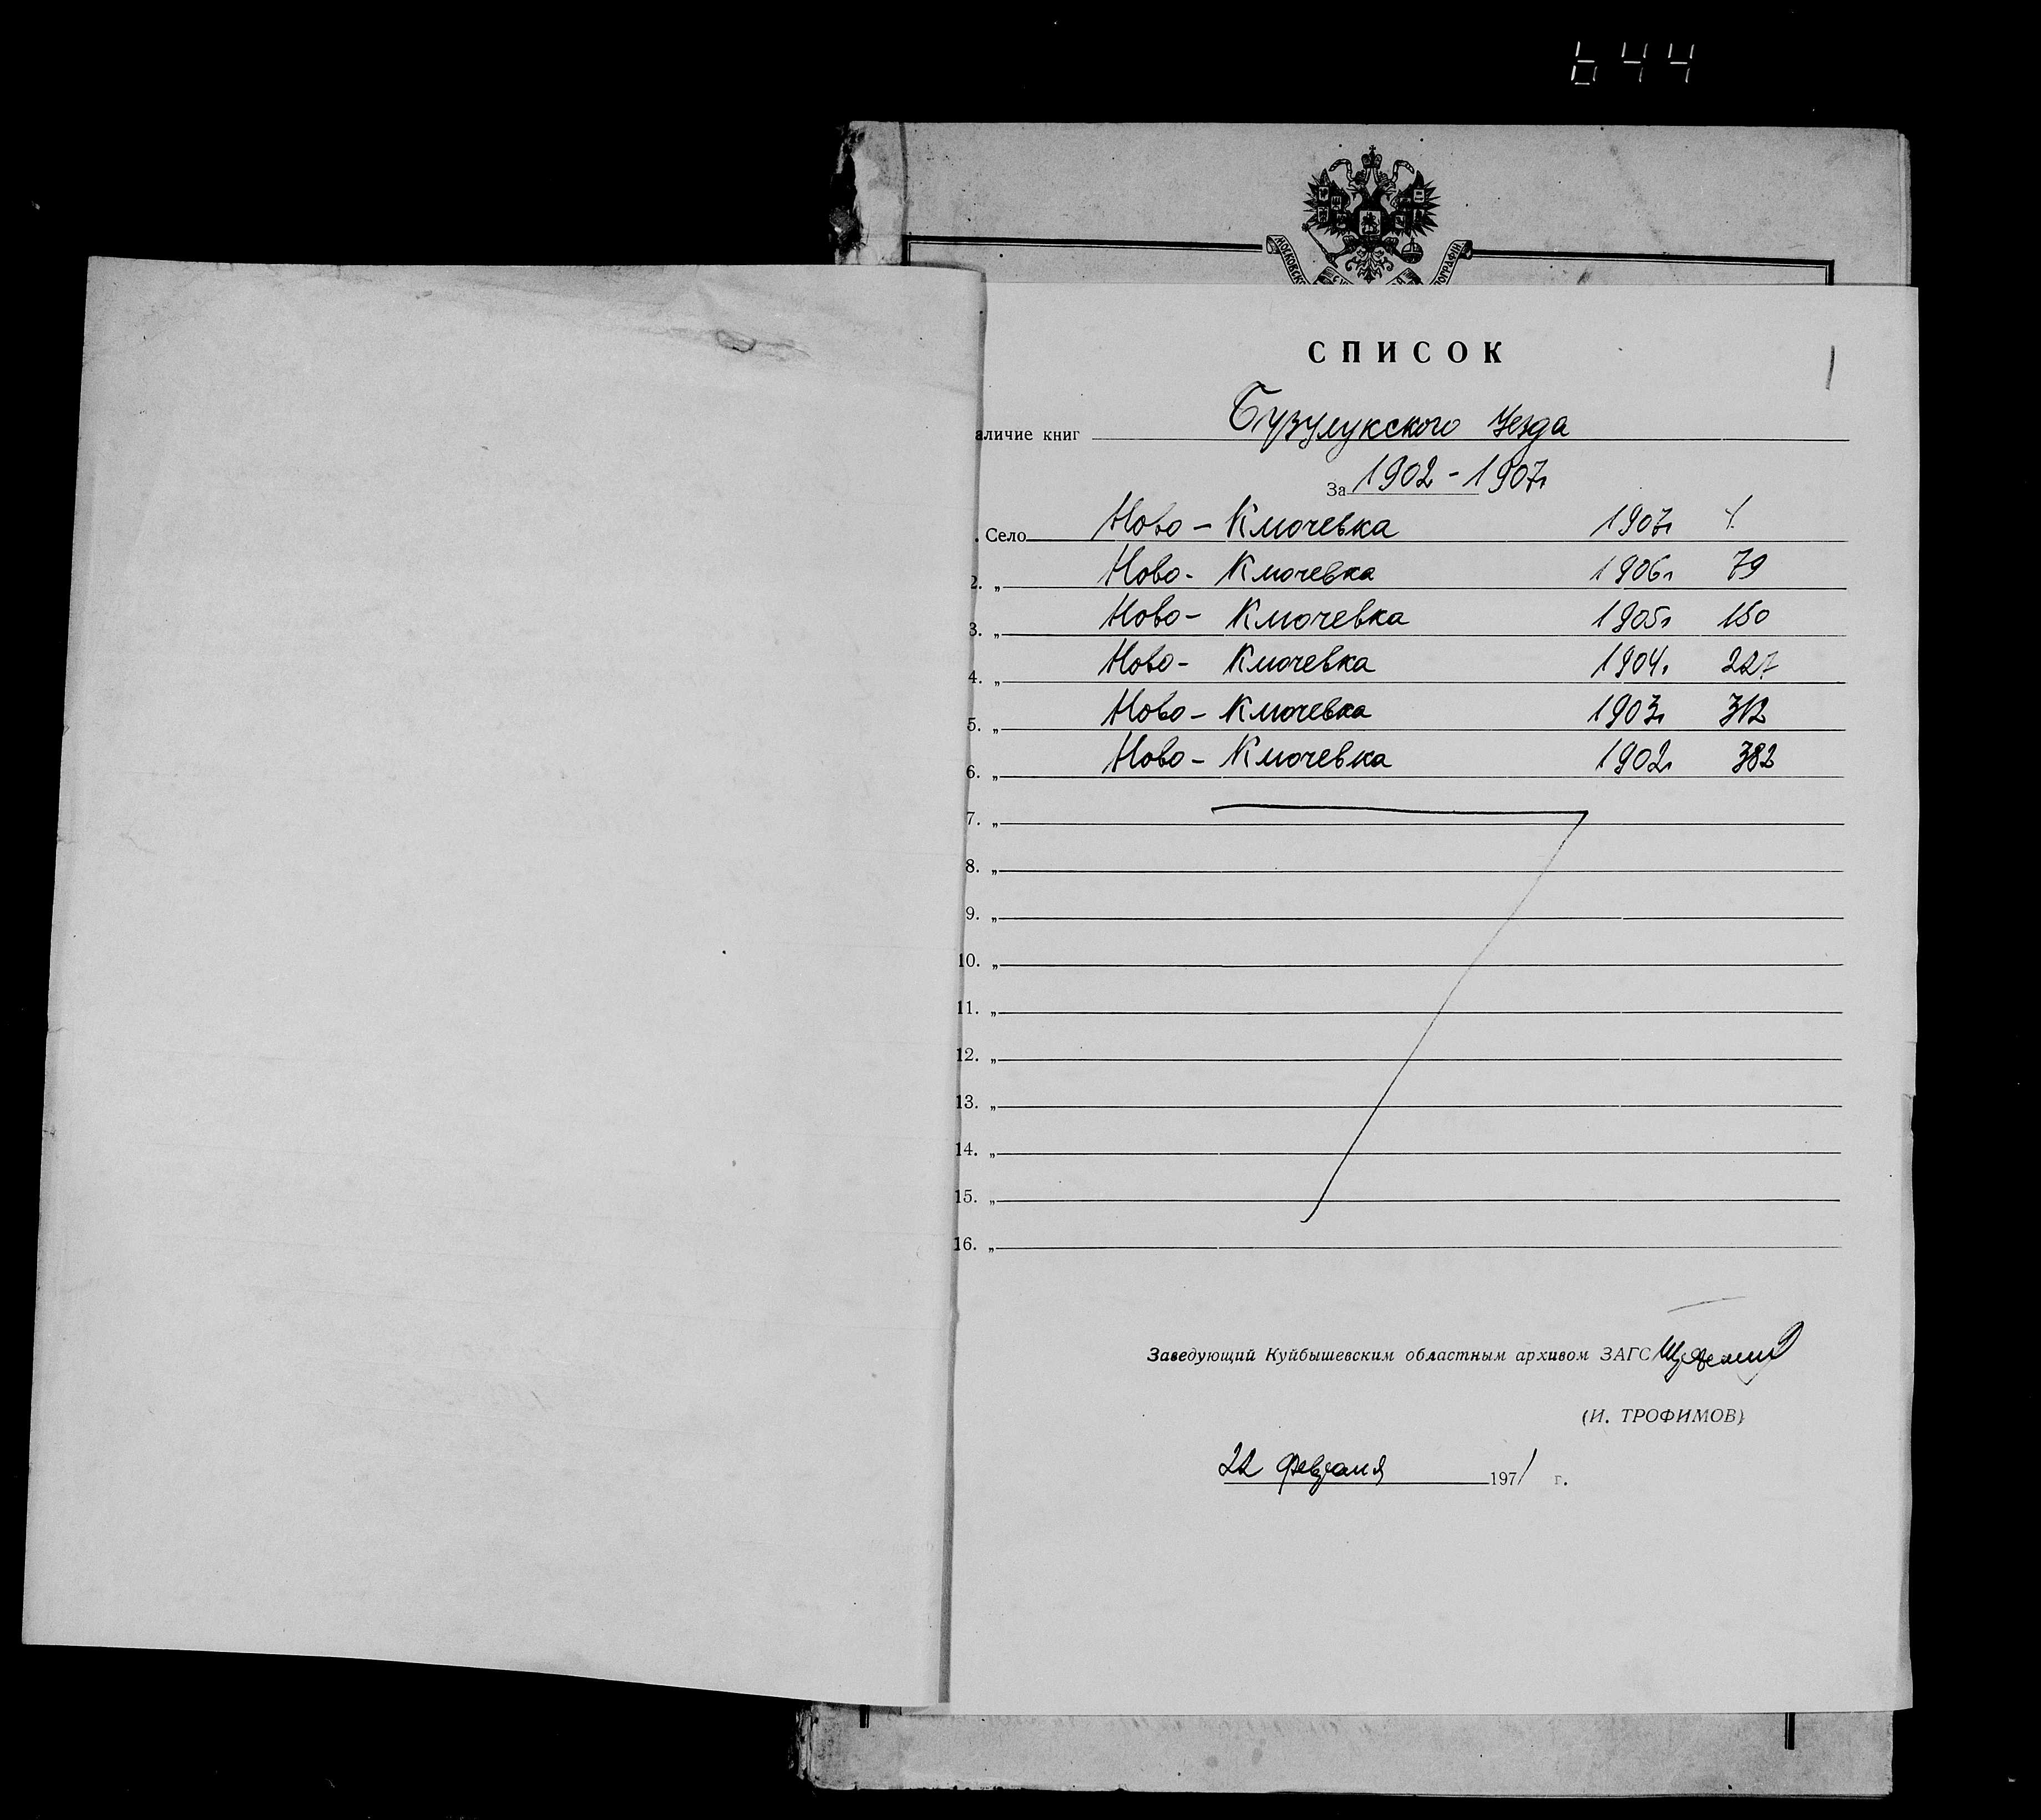 644
МОСКОВСКО
ОГРАФІИ
СПИСОК
1
аличие книг Бузулукского Уезда
За 1902-1907г
. Село Ново-Ключевка 1907г 1.
2. „ Ново-Ключевка 1906г 79
3. „ Ново-Ключевка 1905г 150
4. „ Ново-Ключевка 1904г. 227
5. „ Ново-Ключевка 1903г 312
6. „ Ново-Ключевка 1902г 382
7. „
8. „
9. „
10. „
11. „
12. „
13. „
14. „
15. „
16. „
Заведующий Куйбышевским областным архивом ЗАГС
(И. ТРОФИМОВ)
22 февраля 1971 г.